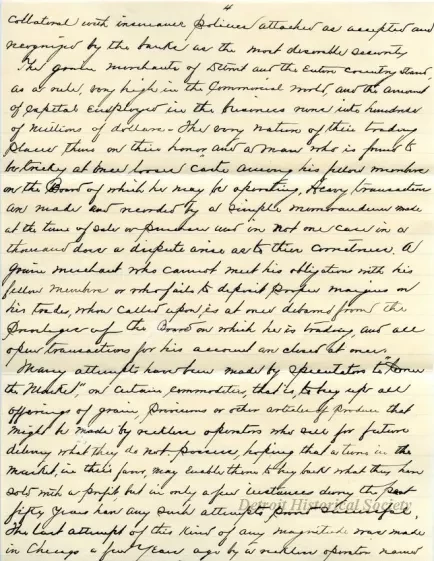 4
Collateral with insurance policies attached as accepted and
recognized by the banks as the most desirable security
The grain merchants of Detroit and the Entire Country stand,
as a rule, very high in the Commercial World, and the amount
of Capital Employed in the business runs into hundreds
of Millions of dollars. The very nature of their trading
places them on their honor and a man who is found to
be tricky at once looses Caste among his fellow members
on the Board of which he may be operating, Heavy transactions
are made and recorded by a simple memorandum made
at the time of sale or purchase and in not one case in a
thousand does a dispute arise as to their correctness. A
grain merchant who cannot meet his obligations with his
fellow members or who fails to deposit proper margins on
his trades, when called upon, is at once debarred from the
privileges of the Board on which he is trading, and all
open transactions for his account are closed at once.
Many attempts have been made by speculators to "corner
the Market", on certain commodities, that is, to buy up all
offerings of grain, provisions or other articles of produce that
might be made by reckless operators who sell for future
delivery what they do not possess, hoping that a turn in the
market, in their favor, may enable them to buy back what they have
sold with a profit but in only a few instances during the past
fifty years have any such attempts proved successful.
The last attempt of this kind of any magnitude was made
in Chicago a few years ago by a reckless operator named
Detroit Historical Society